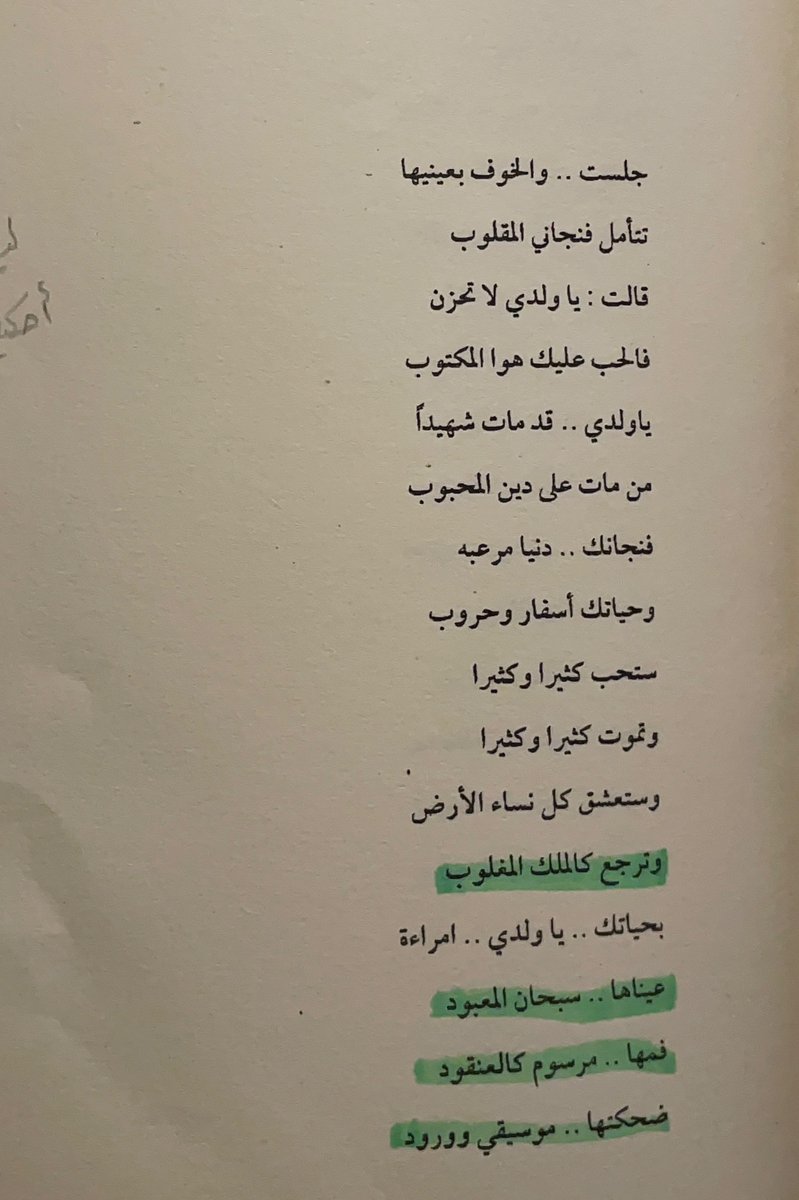 جلست .. والخوف بعينيها
تتأمل فنجاني المقلوب
قالت : يا ولدي لا تحزن
فالحب عليك هوا المكتوب
ياولدي .. قد مات شهيداً
من مات على دين المحبوب
فنجانك .. دنيا مرعبه
وحياتك أسفار وحروب
ستحب كثيرا وكثيرا
وتموت كثيرا وكثيرا
وستعشق كل نساء الأرض
وترجع كالملك المغلوب
بحياتك .. يا ولدي .. امراءة
عيناها .. سبحان المعبود
فمها .. مرسوم كالعنقود
ضحكتها .. موسيقي وورود